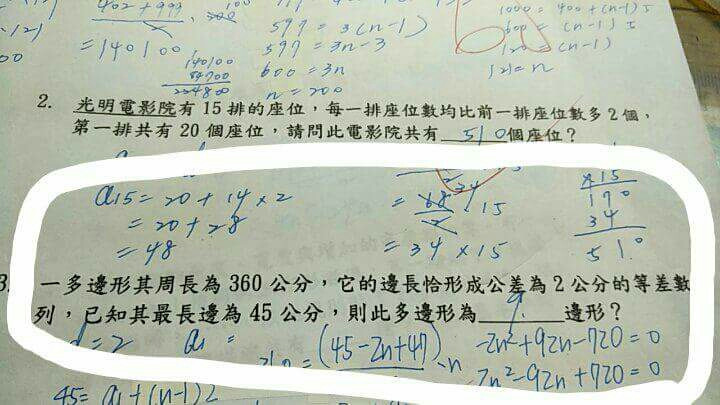 402+999
=140100
140100
84700
224800
597 = 3(n-1)
597 = 3n-3
600 = 3n
n = 200
1000 = 400+(n-1)5
600 = (n-1)5
120 = (n-1)
121 = n
2. 光明電影院有 15 排的座位，每一排座位數均比前一排座位數多 2 個，
第一排共有 20 個座位，請問此電影院共有 510 個座位？
a15 = 20 + 14 × 2
= 20 + 28
= 48
= 68/2 · 15
34
= 34 × 15
×15
170
34
510
3. 一多邊形其周長為 360 公分，它的邊長恰形成公差為 2 公分的等差數
列，已知其最長邊為 45 公分，則此多邊形為 邊形？
d = 2 a1 =
45 = a1 + (n-1)2
360 = (45-2n+47) · n
-2n²+92n-720=0
2n²-92n+720=0